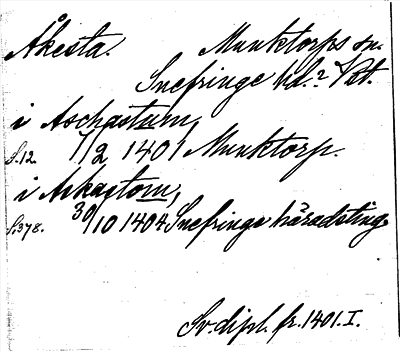 Åkesta. Munktorps sn.
Snefringe hd.? Vstl.
i Aschastum,
S.12. 7/2 1401 Munktorp.
i Askastom,
S.378. 30/10 1404 Snefringe häradsting.
Sv. dipl. fr. 1401. I.